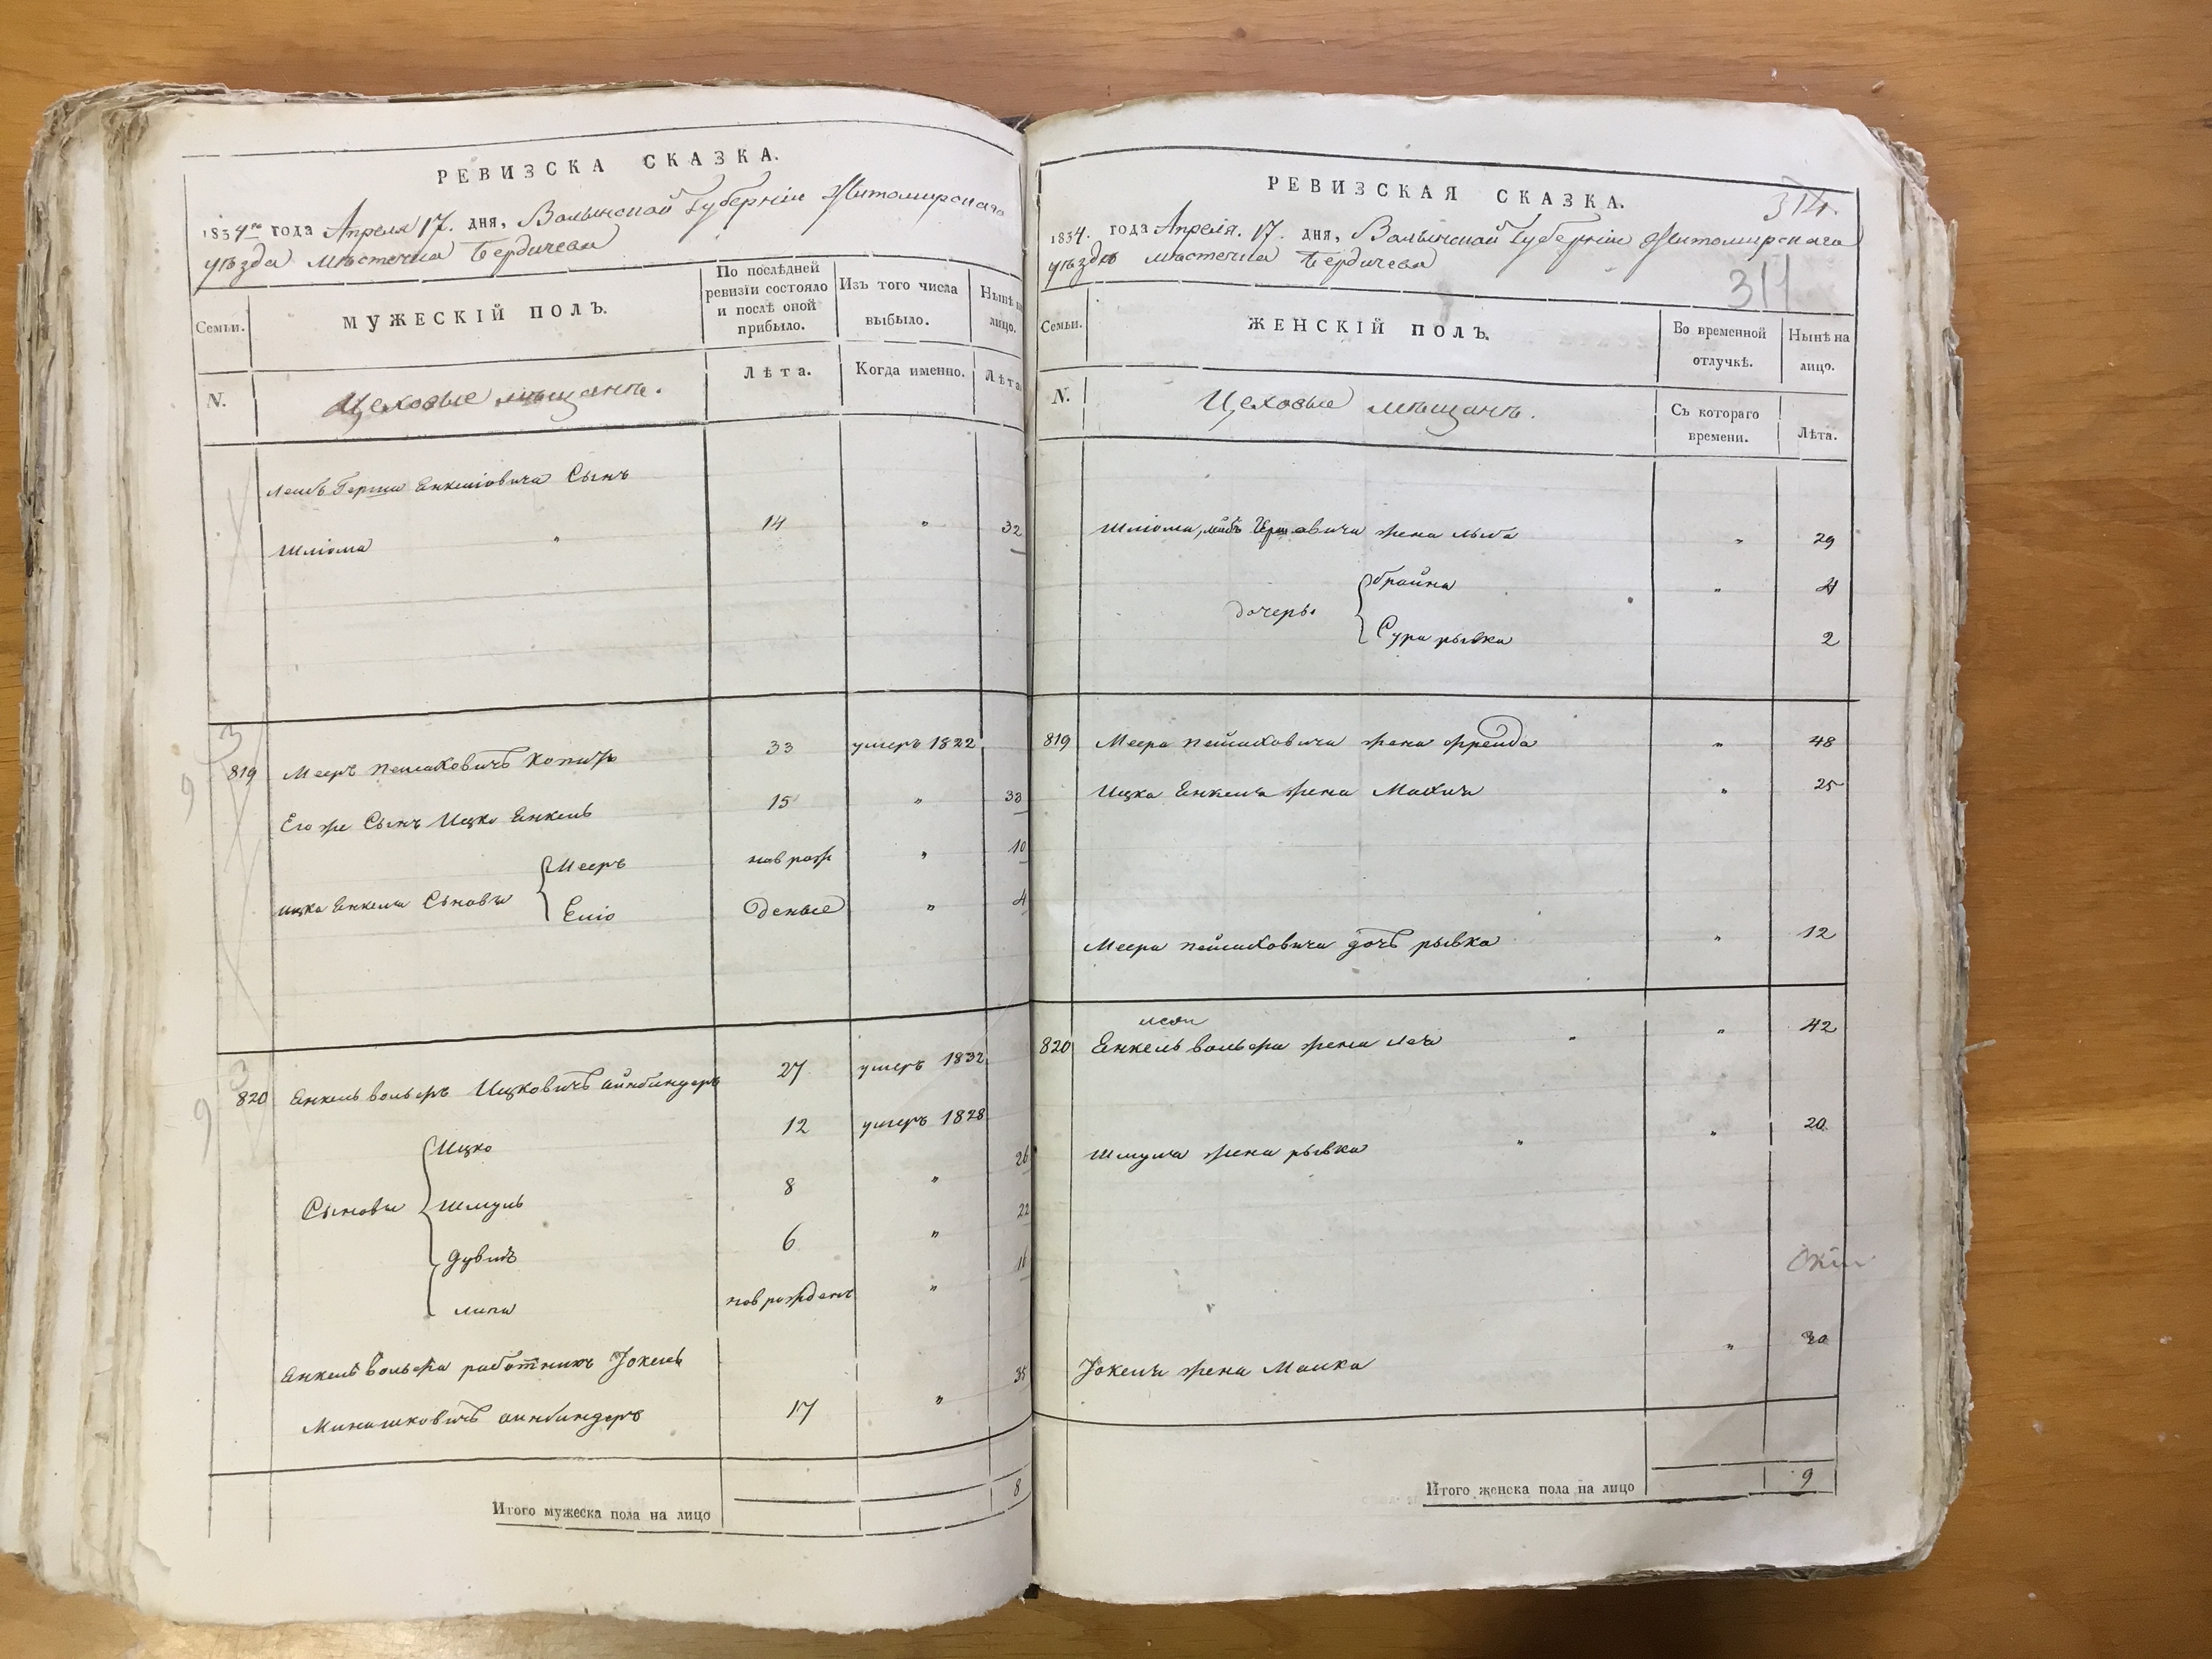 РЕВИЗСКА СКАЗКА.
1834го года Апреля 17. дня, Волынской Губерніи Житомирскаго
уѣзда мѣстечка Бердичева
Семьи.
МУЖЕСКІЙ ПОЛЪ.
По послѣдней
ревизіи состояло
и послѣ оной
прибыло.
Изъ того числа
выбыло.
Нынѣ на
лицо.
N.
Цеховые мѣщанъ.
Лѣта.
Когда именно.
Лѣта
Лейбъ Герша Енкеліовича Сынъ
Шліома " 14 " 32
3
819 Мееръ Пейсаховичъ 33 умеръ 1822
9
Его же Сынъ Ицко Енкель 15 " 33
Мееръ новрож " 10
Ицка Енкеля Сыновья
Еліо деные " 4
3
820 Енкель вольфъ Ицковичъ айнбиндеръ 27 умеръ 1832
9
Ицко 12 умеръ 1828
Сыновья Шмуль 8 " 26
Дувидъ 6 " 22
Липа новрожденъ " 11
Енкель вольфа работникъ Іокель
Минашковичъ аинбиндеръ 17 " 35
Итого мужеска пола на лицо 8
РЕВИЗСКАЯ СКАЗКА.
314.
1834. года Апреля. 17. дня, Волынской Губерніи Житомирскаго
уѣзда мѣстечка Бердичева
311
Семьи.
ЖЕНСКІЙ ПОЛЪ.
Во временной
отлучкѣ.
Нынѣ на
лицо.
N.
Цеховые мѣщанъ.
Съ котораго
времени.
Лѣта.
Шліома, лейбъ Гершовича жена " 29
Брайна " 4
дочерь
Сура рывка 2
819 Меера Пейсаховича жена фрейда " 48
Ицка Енкеля жена Махля " 25
Меера Пейсаховича дочъ рывка " 12
820 Енкель вольфа жена Лея " " 42
Шмуля жена рывка " " 20
Іокеля жена Малка " 30
Итого женска пола на лицо 9